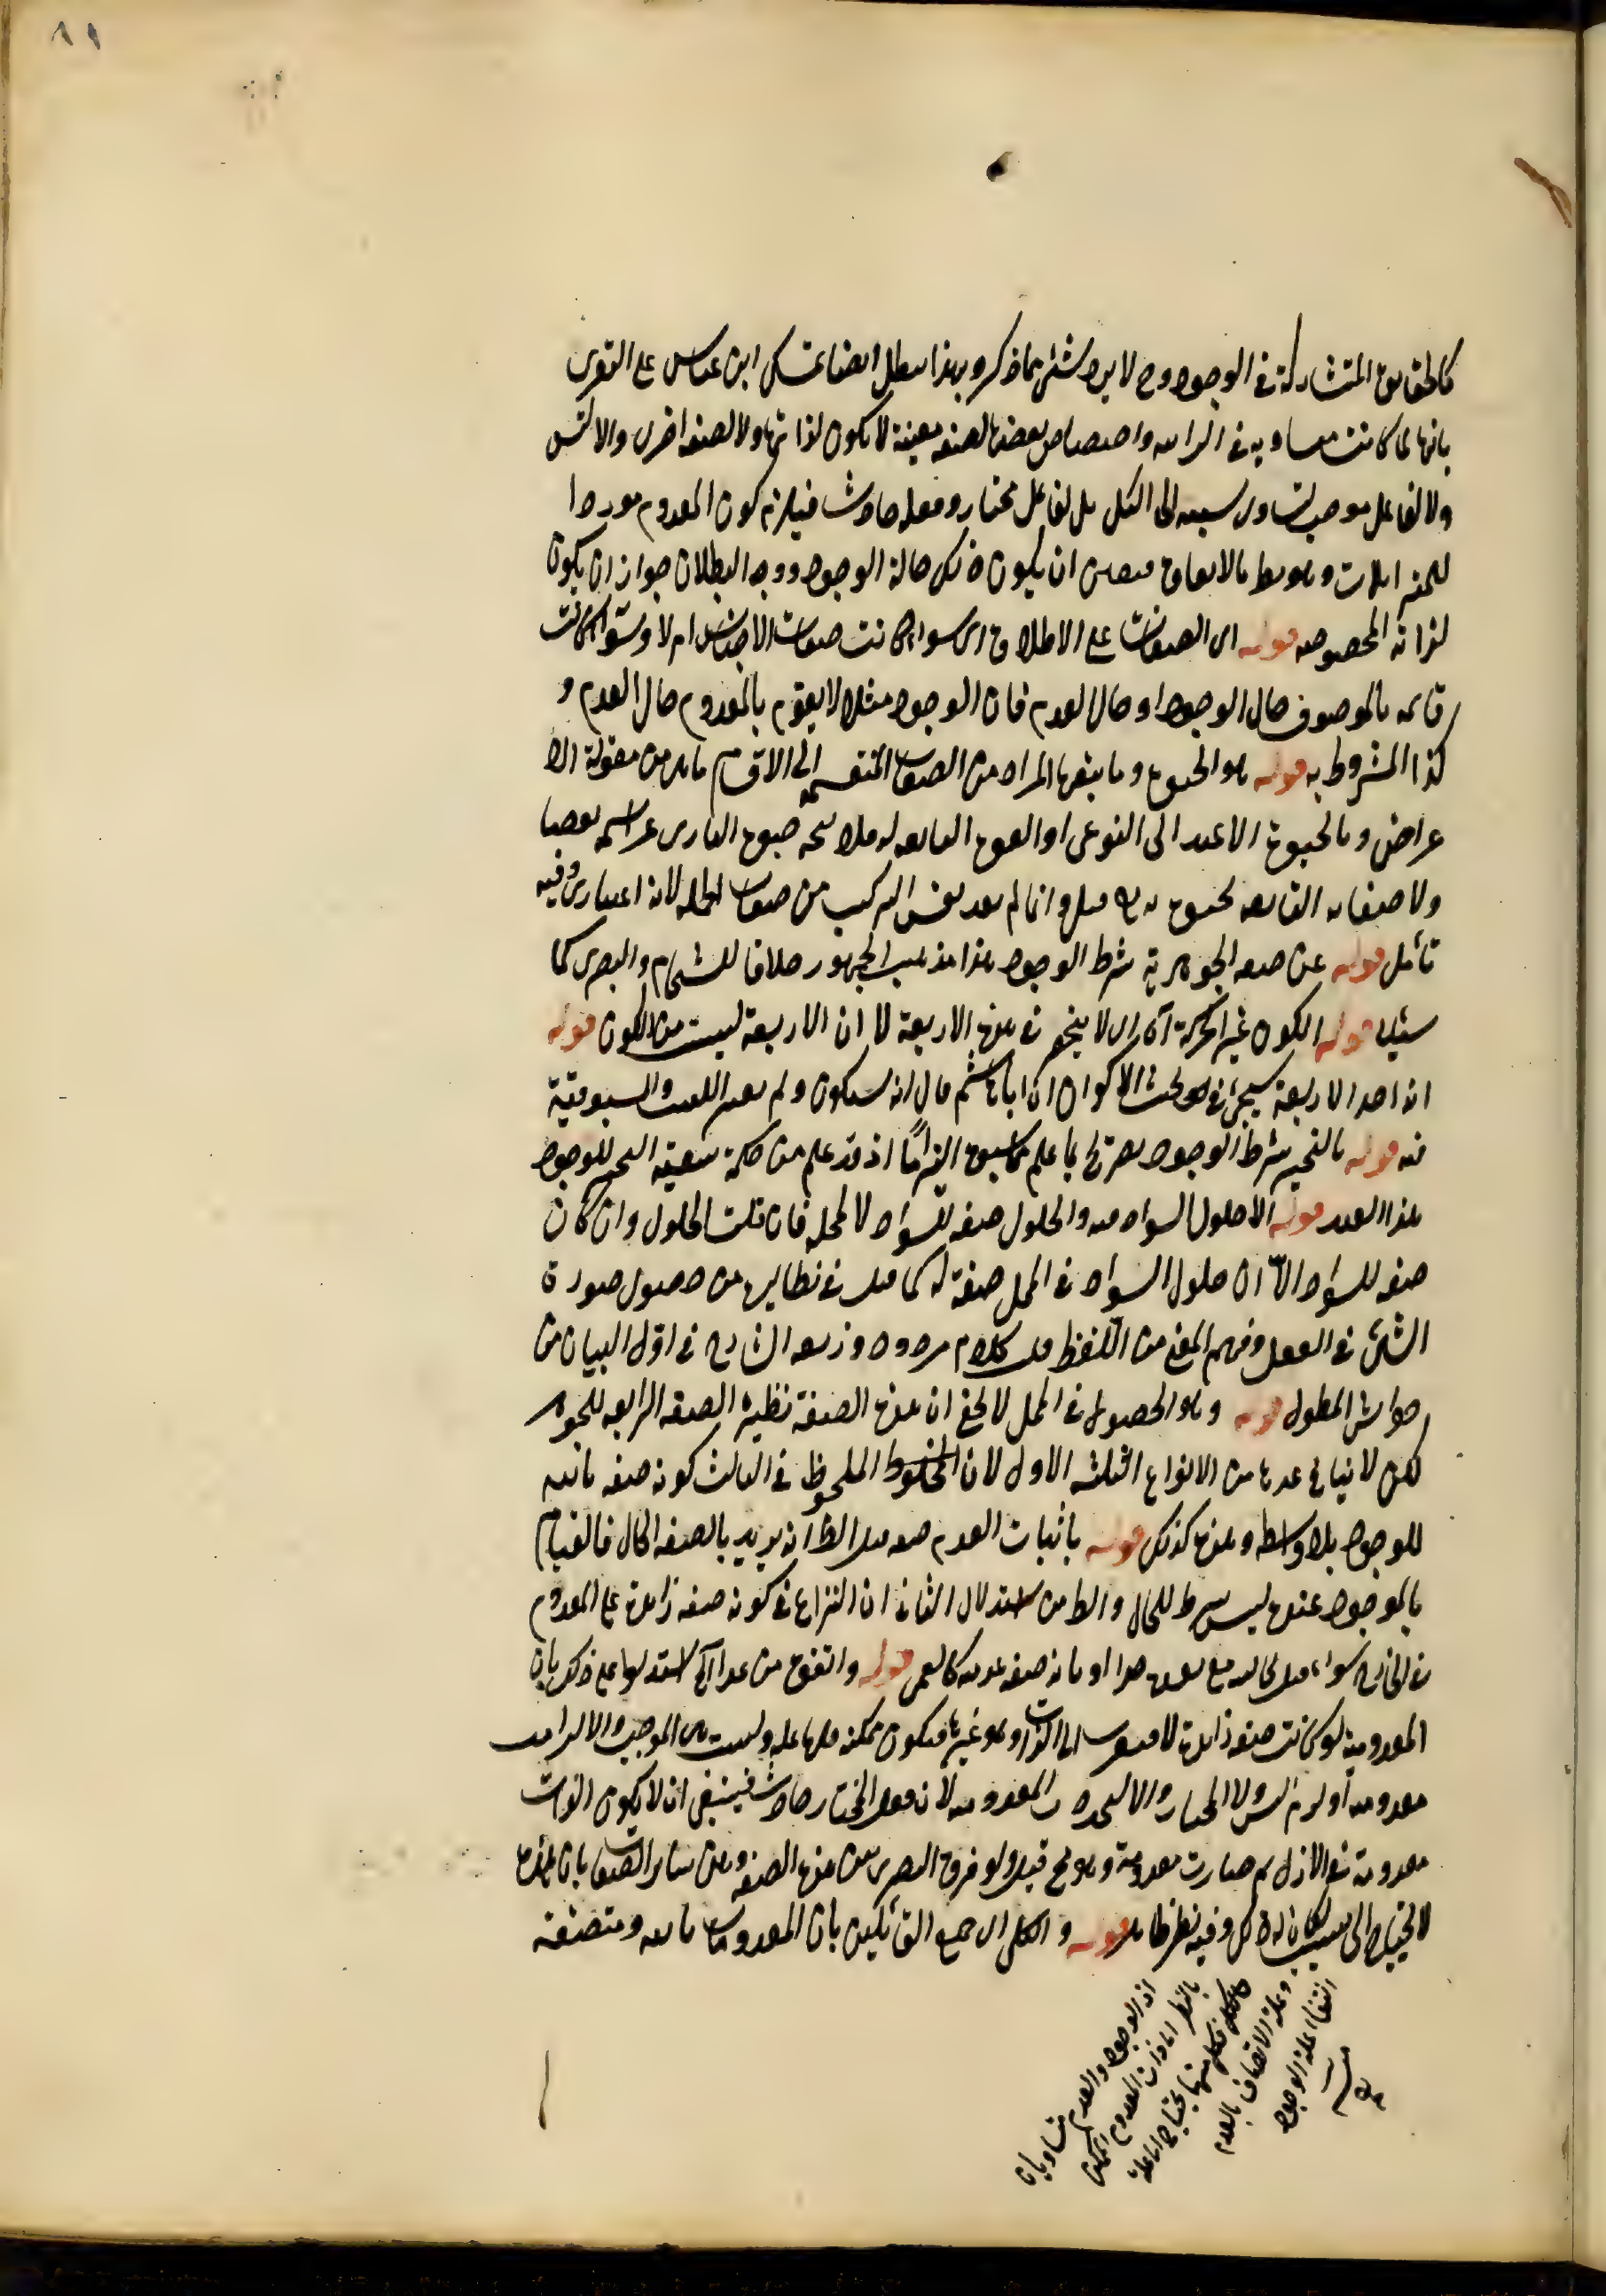 كالحقايق المتشاركة في الوجود وح لا يرد شئ مما ذكر وبهذا يبطل ايضا تمسك ابن عياش على التعرى
بانها لما كانت متساوية في الذاتيه واختصاص بعضها لصفة معينة لا يكون لذاتها ولا لصفة اخرى والا لتس
ولا لفاعل موجب لتساوى نسبته الى الكل بل لفاعل مختار وفعله حادث فيلزم كون المعدوم موردا
للمتزايلات وهو بط بالاتفاق فتعين ان يكون ذلك حالة الوجود ووجه البطلان جواز ان يكون
لذاته المخصوصه قوله اى الصفات على الاطلاق اى سواء كانت صفات الاجناس ام لا وسواء كانت
قائمه بالموصوف حال الوجود او حال العدم فان الوجود مثلا لا يقوم بالمعدوم حال العدم و
كذا المشروط به قوله هو الحيوة وما يتبعها المراد من الصفات المنقسمة الى الاقسام ما هى من مقولة الا
عراض وبالحيوة الاعتدال النوعى او القوة التابعه له فلا يتجه حيوة البارى عز اسمه نقضا
ولا صفاته التابعه لحيوته تع قيل وانما لم يعد نفس التركيب من صفات الجملة لانه اعتبارى وفيه
تأمل قوله عن صفة الجوهرية شرط الوجود هذا مذهب الجمهور خلافا للشحام والبصرى كما
سيئ قوله الكون غير الحركة آه اى لا ينحصر في هذه الاربعة لا ان الاربعة ليست من الكون قوله
انه احد الاربعة سيجئ في بحث الاكوان ان اباهاشم قال انه سكون ولم يعتبر اللبث والمسبوقية
فيه قوله بالتحيز شرط الوجود تصريح بما علم مما سبق التزاما اذ قد علم من حكمه تبعية التحيز للوجود
هذا القيد قوله الا حلول السواد فيه والحلول صفة للسواد لا لمحله فان قلت الحلول وان كان
صفة للسواد الا ان حلول السواد في المحل صفة له كما قيل في نظايره من حصول صورة
الشئ في العقل وفهم المعنى من اللفظ قلت كلام مردود وزيفه الشارح في اوّل البيان من
حواشى المطول قوله وهو الحصول في المحل لا يخفى ان هذه الصفة نظيرة الصفة الرابعه للجوهر
لكن لا ينافى عدها من الانواع الثلثه الاول لان الملحوظ في الثالث كونه صفة تابعة
للوجود بلا واسطة وهذه كذلك قوله باثبات العدم صفة قيل الظ انه يريد بالصفة الحال فالقيام
بالموجود عنده ليس شرط للحال والظ من استدلال الثانى ان النزاع في كونه صفة زايدة على المعدوم
في الخارج سواء قيل بحاليته مع بعده جدا او بانه صفة عدميه كالعمى قوله واتفق من عداه آه استدلوا على ذلك بان
المعدومية لو كانت صفة زايدة لافتقرت الى الذات وهو غيرها فتكون ممكنة فلها علة وليست هى الموجب والا لدامت
معدوميته او لزم التس ولا المختار والا لتجددت المعدوميه لان فعل المختار حادث فينبغى ان لا يكون الذوات
معدومة في الازل ثم صارت معدومة وهو مح قيل ولو فرق البصرى بين هذه الصفة وبين سائر الصفات بان هذه
لا تحتاج الى سبب لكان له ذلك وفيه نظر ظاهر قوله والكل اى جميع القائلين بان المعدومات ثابته ومتصفة
اذ الوجود والعدم متساويان
بالنظر الى ذات المعدوم الممكن
فكل منهما يحتاج الى علة
وعلة الاتصاف بالعدم
انتفاء علة الوجود
منه